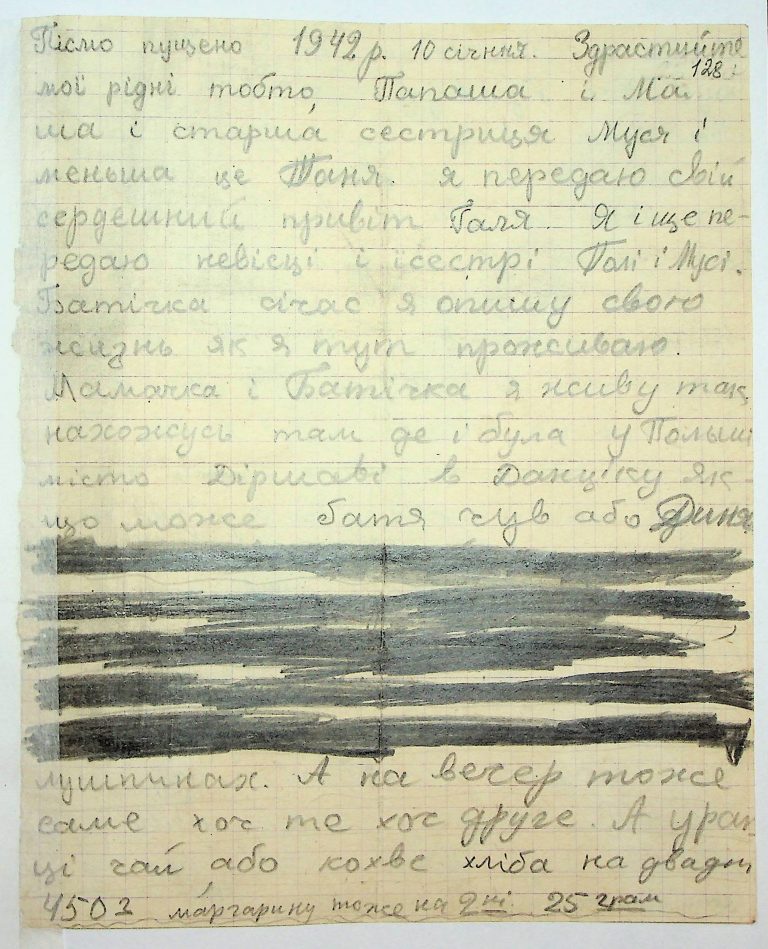 Пісмо пущено 1942 р. 10 січня. Здрастийте
128
мої рідні тобто Папаша і Ма
ша і старша сестриця Муся і
меньша це Таня. я передаю свій
сердешний привіт Галя. Я і ще пе-
редаю невісці і їсестрі Полі і Мусі.
Батічка січас я опишу свою
жизнь як я тут проживаю.
Мамачка і Батічка я живу так,
нахожусь там де і була у Польші
місто Діршаві в Данціку як-
що може батя чув або
лушпинах. А на вечер тоже
саме хоч те хоч друге. А уран
ці чай або кохве хліба на два дні
450г маргарину тоже на 2 дні 25 грам